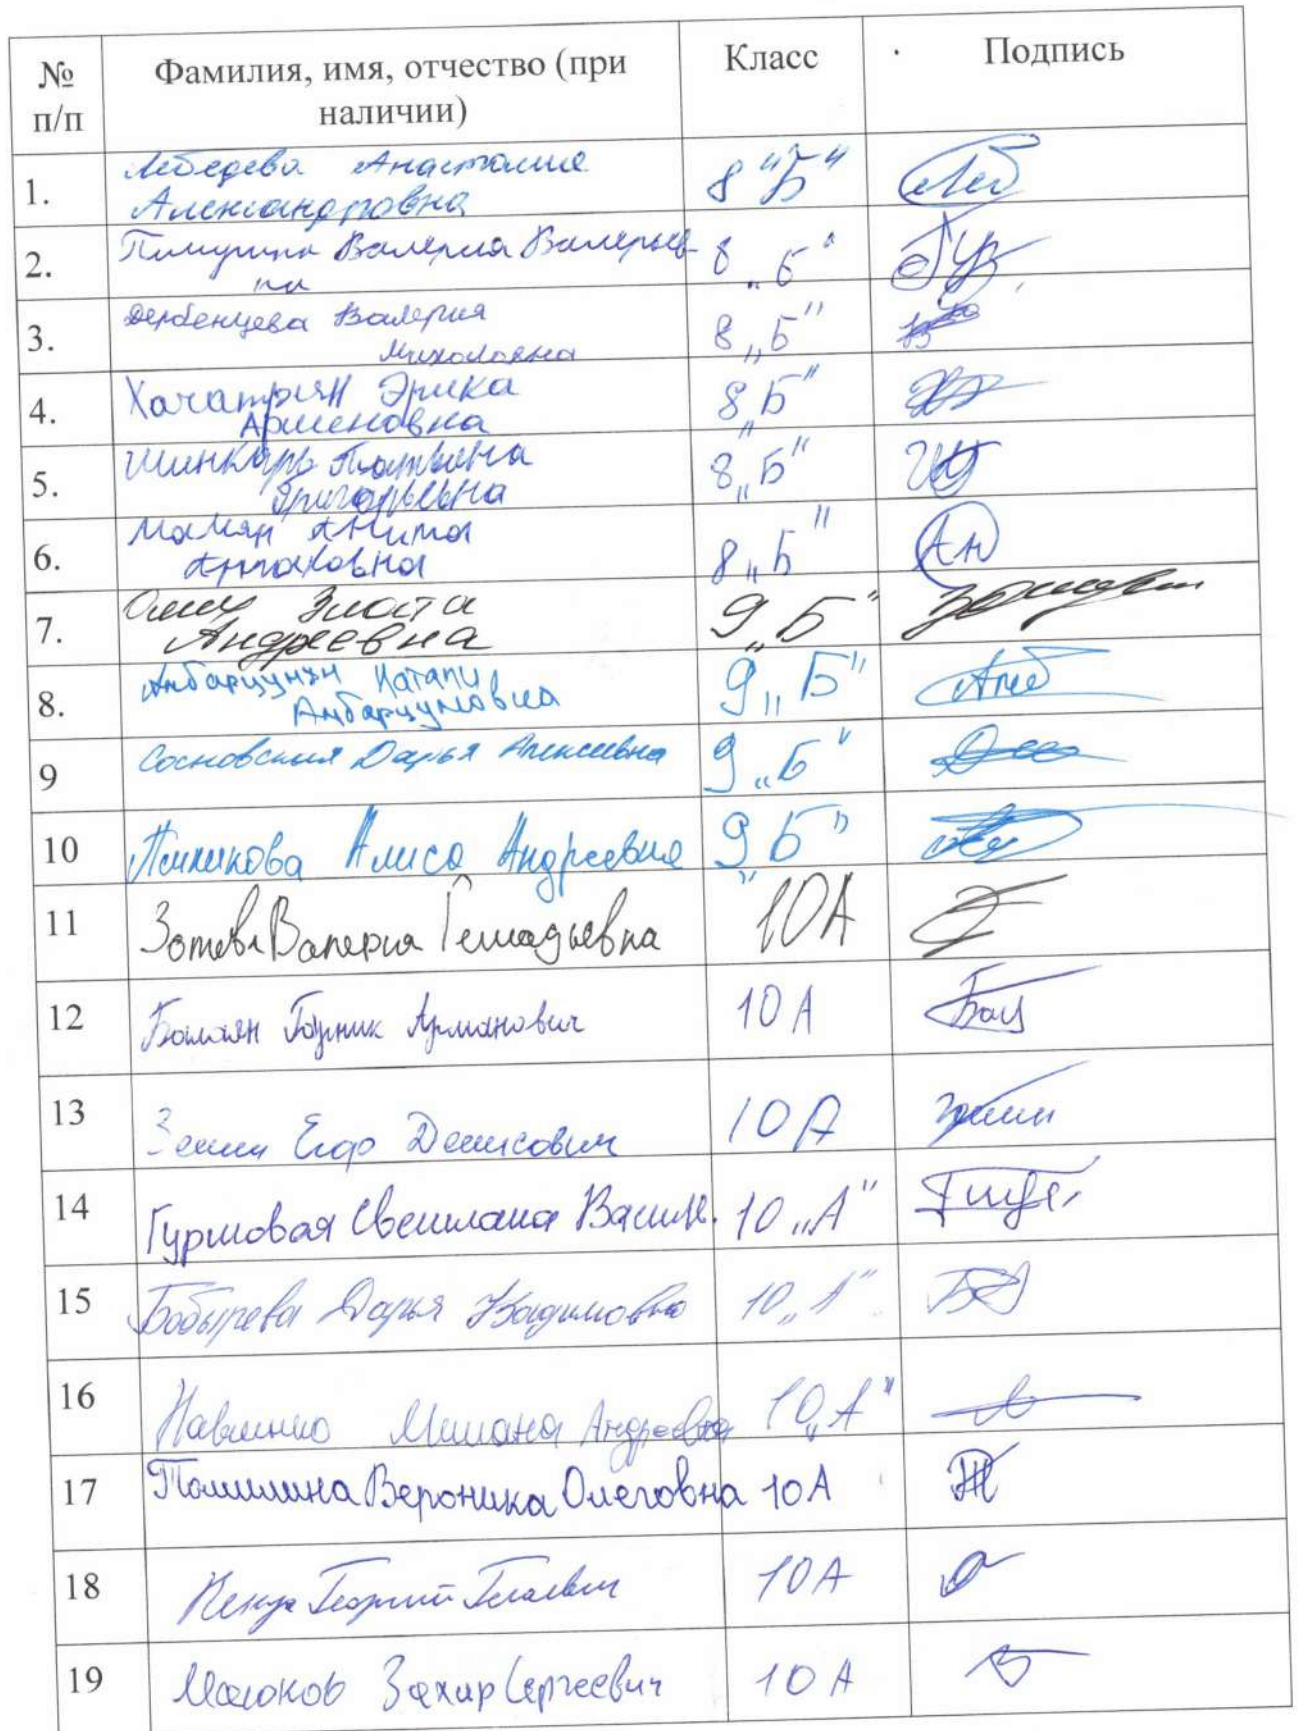 № п/п Фамилия, имя, отчество (при наличии) Класс Подпись
1. Лебедева Анастасия Александровна 8 "Б"
2. Валерия Валерьевна 8 „Б"
3. Дербенцева Валерия Михайловна 8 „Б"
4. Хачатрян Эрика Арменовна 8 „Б"
5. Шинкарь Татьяна Григорьевна 8 „Б"
6. Мамян Анита Артаковна 8 „Б" Ан
7. Злата Андреевна 9 „Б"
8. Амбарцумян Натали Амбарцумовна 9 „Б"
9 Сосновская Дарья Алексеевна 9 „Б"
10 Алиса Андреевна 9 „Б"
11 Зотова Валерия Геннадьевна 10А
12 Балаян Гарник Арманович 10 А
13 Егор Денисович 10 А
14 Светлана Василь. 10 „А"
15 Бобырева Дарья Вадимовна 10 „А"
16 Милана Андреевна 10 „А"
17 Вероника Олеговна 10А
18 Георгий 10А
19 Захар Сергеевич 10 А